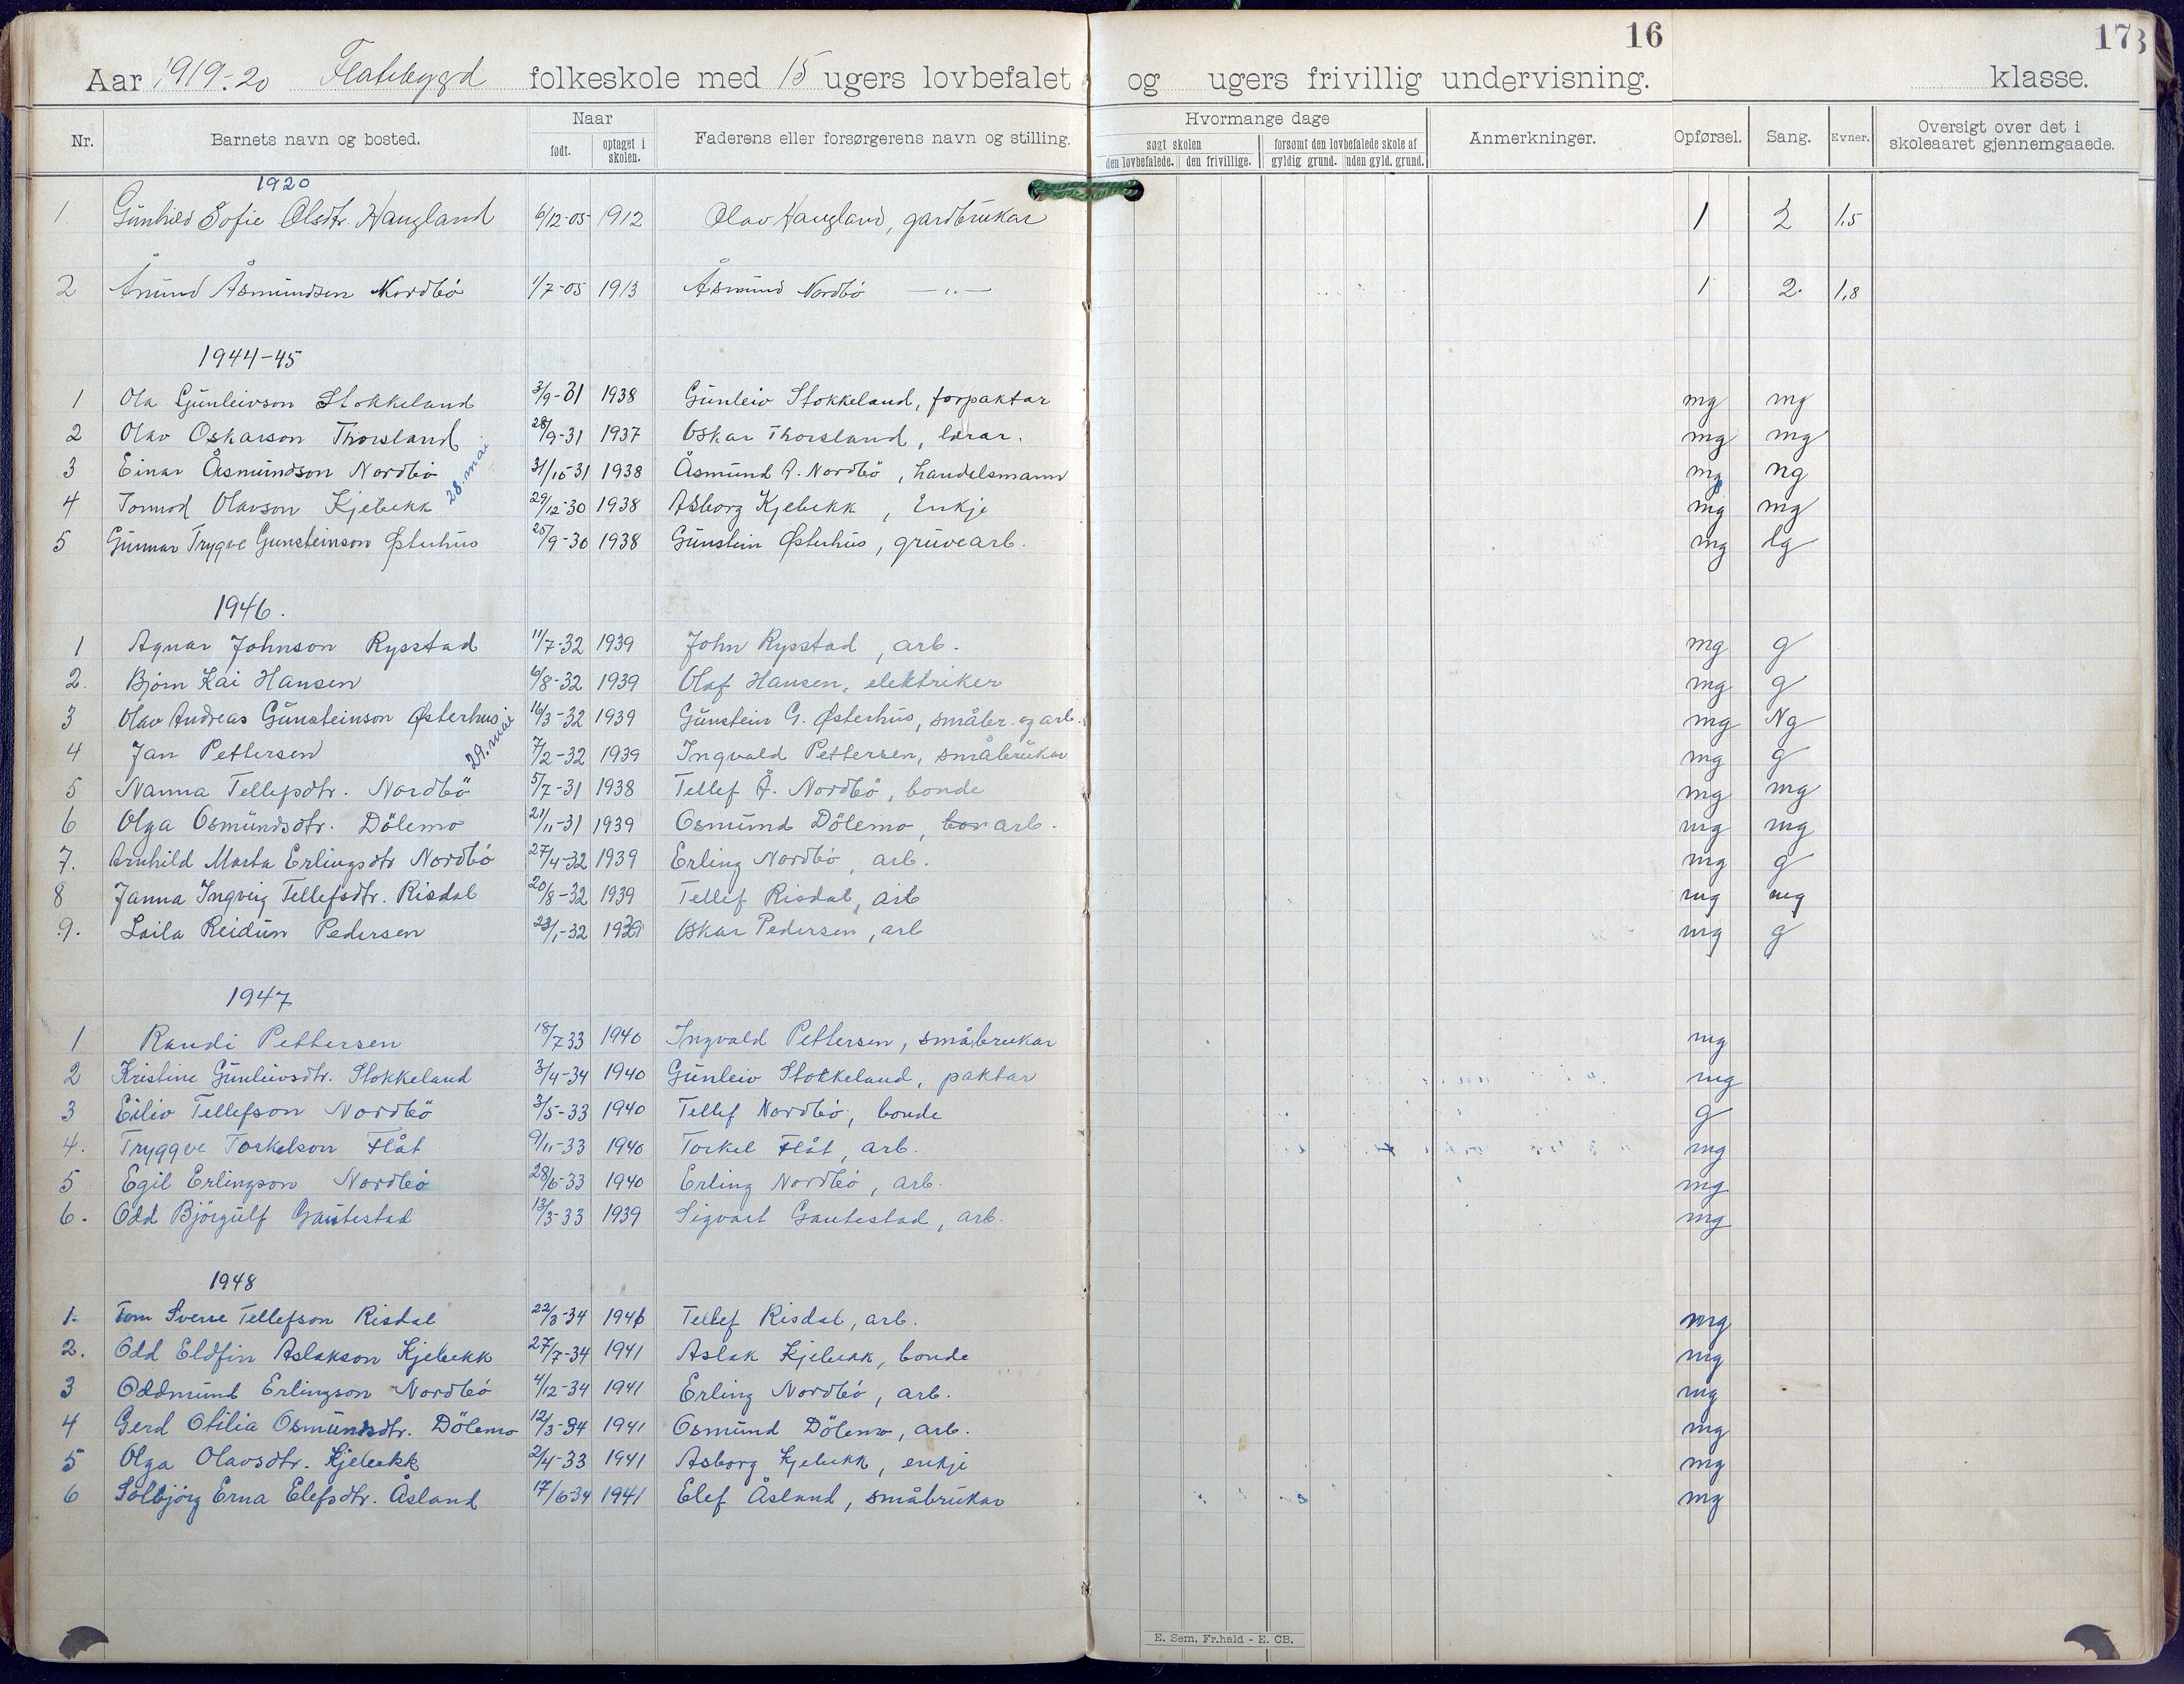 16
173
Aar 1919-20 Flatebygd folkeskole med 15 ugers lovbefalet og ugers frivillig undervisning. klasse.
Nr. Barnets navn og bosted. Naar født. optaget i skolen. Faderens eller forsørgerens navn og stilling. Hvormange dage søgt skolen den lovbefalede. den frivillige. forsømt den lovbefalede skole af gyldig grund. uden gyld. grund. Anmerkninger. Opførsel. Sang. Evner. Oversigt over det i skoleaaret gjennemgaaede.
1920
1. Gunhild Sofie Olsdtr. Haugland 6/12-05 1912 Olav Haugland, gardbrukar 1 2 1,5
2 Ånund Åsmundsen Nordbö 1/7-05 1913 Åsmund Nordbö —"— 1 2. 1,8
1944-45
1 Ola Gunleivson Stokkeland 3/9-31 1938 Gunleiv Stokkeland, forpaktar mg mg
2 Olav Oskarson Thorsland 28/9-31 1937 Oskar Thorsland, lærar. mg mg
3 Einar Åsmundson Nordbö 31/10-31 1938 Åsmund A. Nordbö, handelsmann mg ng
28. mai
4 Tormod Olavson Kjebekk 29/12-30 1938 Asborg Kjebekk, Enkje mg mg
5 Gunnar Trygve Gunsteinson Østerhus 25/9-30 1938 Gunstein Østerhus, gruvearb. mg lg
1946.
1 Agnar Johnson Rysstad 11/7-32 1939 John Rysstad, arb. mg g
2. Bjørn Kai Hansen 6/8-32 1939 Olaf Hansen, elektriker mg g
3 Olav Andreas Gunsteinson Østerhus 16/3-32 1939 Gunstein G. Østerhus, småbr. og arb. mg Ng
29. mai
4 Jan Pettersen 7/2-32 1939 Ingvald Pettersen, småbrukar mg g
5 Nanna Tellefsdtr. Nordbö 5/7-31 1938 Tellef Å. Nordbö, bonde mg mg
6 Olga Osmundsdtr. Dölemo 21/11-31 1939 Osmund Dölemo, bon arb. mg mg
7. Arnhild Marta Erlingsdtr Nordbö 27/4-32 1939 Erling Nordbö, arb. mg g
8 Janna Ingveig Tellefsdtr. Risdal 20/8-32 1939 Tellef Risdal, arb mg mg
9. Laila Reidun Pedersen 23/1-32 1939 Oskar Pedersen, arb mg g
1947
1 Randi Pettersen 18/7 33 1940 Ingvald Pettersen, småbrukar mg
2 Kristine Gunleivsdtr. Stokkeland 3/4-34 1940 Gunleiv Stokkeland, paktar mg
3 Eiliv Tellefson Nordbö 3/5-33 1940 Tellef Nordbö, bonde g
4. Tryggve Torkelson Flåt 9/11-33 1940 Torkel Flåt, arb. mg
5 Egil Erlingson Nordbö 28/6-33 1940 Erling Nordbö, arb. mg
6. Odd Björgulf Gautestad 13/3-33 1939 Sigvart Gautestad, arb. mg
1948
1. Tom Sverre Tellefson Risdal 22/3-34 1941 Tellef Risdal, arb. mg
2. Odd Eldfin Aslakson Kjebekk 27/7-34 1941 Aslak Kjebekk, bonde mg
3 Oddmund Erlingson Nordbö 4/12-34 1941 Erling Nordbö, arb. mg
4 Gerd Otilia Osmundsdtr. Dölemo 12/3-34 1941 Osmund Dölemo, arb. mg
5 Olga Olavsdtr. Kjebekk 2/4-33 1941 Asborg Kjebekk, enkje mg
6 Solbjörg Erna Elefsdtr. Åsland 17/6 34 1941 Elef Åsland, småbrukar mg
E. Sem, Fr.hald - E. CB.